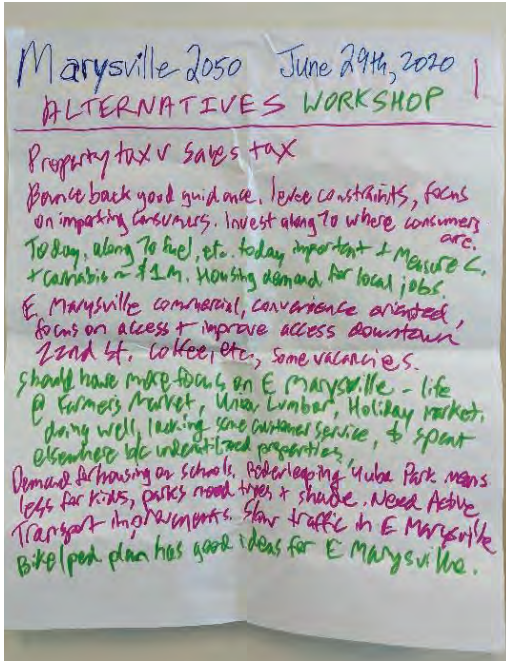 Marysville 2050 June 29th, 2020 1
ALTERNATIVES WORKSHOP
Property tax v Sales tax
Bounce back good guidance, levee constraints, focus
on importing consumers. Invest along 70 where consumers
are.
Today, along 70 fuel, etc. today important + Measure C.
+ cannabis ~ $1m. Housing demand for local jobs
E. Marysville commercial, convenience oriented,
focus on access + improve access downtown
22nd St. coffee, etc., some vacancies.
Should have more focus on E Marysville - life
@ Farmers Market, Union Lumber, Holiday market,
doing well, lacking some customer service, $ spent
elsewhere b/c underutilized properties,
Demand for housing on schools. Yuba Park means
less for kids, parks need trees + shade. Need Active
Transport improvements. Slow traffic in E Marysville
Bike/ped plan has good ideas for E Marysville.